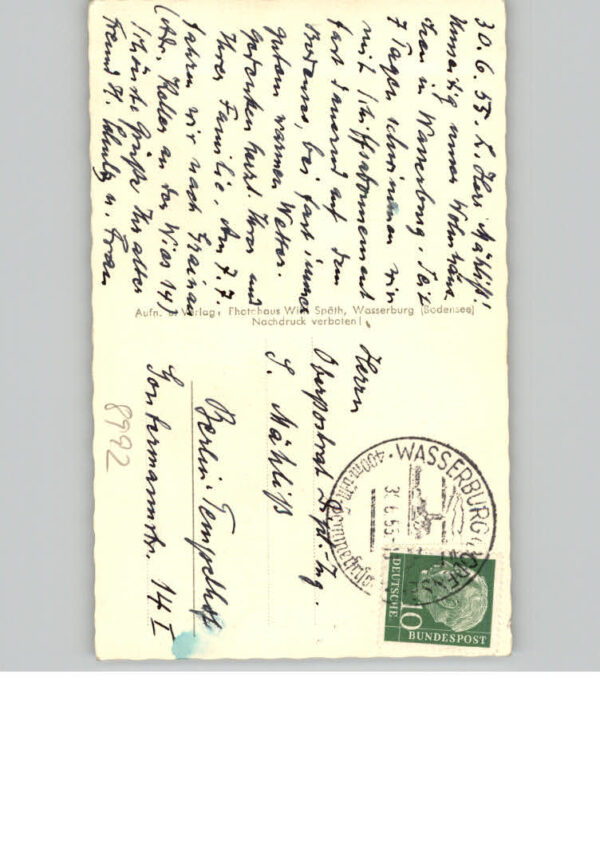 30.6.55. L. Herr Mähliß!
Umseitig unser Wohnhäus-
chen in Wasserburg. Seit
7 Tagen schwimmen wir
mit Schiffsabonnement
fast dauernd auf dem
Bodensee, bei fast immer
gutem warmen Wetter.
Gedenken herzl. Ihrer und
Ihrer Familie. Am 7.7.
fahren wir nach Grainau
(Adr. Koller an der Wies 14)
Schönste Grüße Ihr alter
Freund u. Frau
Aufn. u. Verlag: Photohaus Wilh. Späth, Wasserburg (Bodensee)
Nachdruck verboten!
Herrn
Oberpostrat Dipl.-Ing.
S. Mähliß
Berlin-Tempelhof
Gontermannstr. 14 I
8992
WASSERBURG (BODENSEE)
400m ü.M. Sommerfrische
30.6.55
DEUTSCHE
BUNDESPOST
10